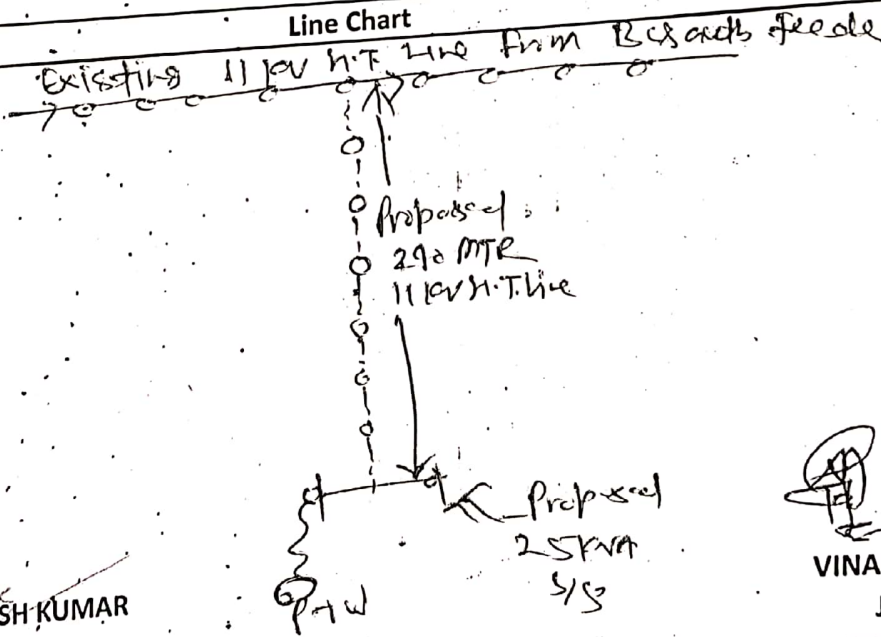 Line Chart
Existing 11 KV H.T. Line From feede
Proposed
290 MTR
11 KV H.T. Line
Proposed
25 KVA
S/S
PTW
SH KUMAR
VINA